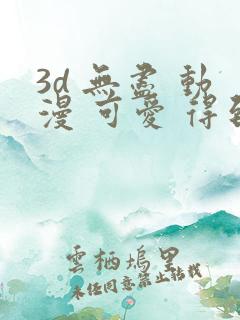 3d 無盡 動
漫 可愛 得到
雲栖塢里
未任同意禁止转载